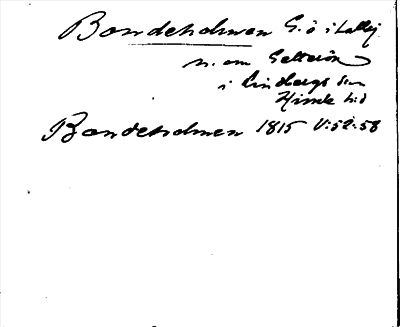 Bondeholmen G. ö i Kattleg
n. om Getterön
i Lindbergs sn
Himle hd
Bondeholmen 1815 V:52:58